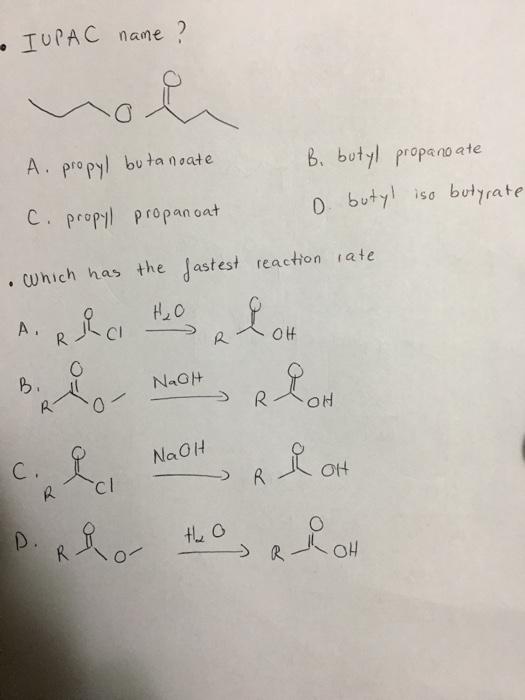 • IUPAC name ?
O
O
A. propyl butanoate
B. butyl propanoate
C. propyl propanoat
D. butyl iso butyrate
• which has the fastest reaction rate
A. R O Cl H₂O R O OH
B. R O O NaOH R O OH
C. R O Cl NaOH R O OH
D. R O O H₂O R O OH